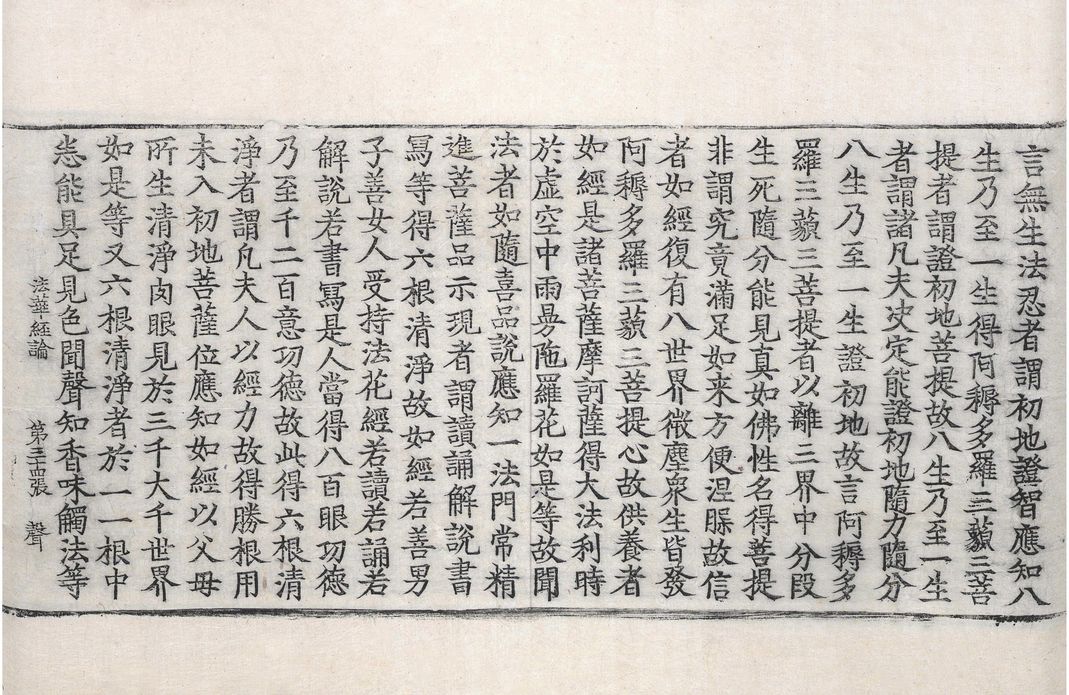 言無生法忍者謂初地證智應知八
生乃至一生得阿耨多羅三藐三菩
提者謂證初地菩提故八生乃至一生
者謂諸凡夫决定能證初地隨力隨分
八生乃至一生證初地故言阿耨多
羅三藐三菩提者以離三界中分段
生死隨分能見真如佛性名得菩提
非謂究竟滿足如来方便涅槃故信
者如經復有八世界微塵衆生皆發
阿耨多羅三藐三菩提心故供養者
如經是諸菩薩摩訶薩得大法利時
於虛空中雨曼陁羅花如是等故聞
法者如隨喜品說應知一法門常精
進菩薩品示現者謂讀誦解說書
寫等得六根清淨故如經若善男
子善女人受持法花經若讀若誦若
解說若書寫是人當得八百眼功德
乃至千二百意功德故此得六根清
淨者謂凡夫人以經力故得勝根用
未入初地菩薩位應知如經以父母
所生清淨肉眼見於三千大千世界
如是等又六根清淨者於一一根中
悉能具足見色聞聲知香味觸法等
法華經論 第三十四張 聲